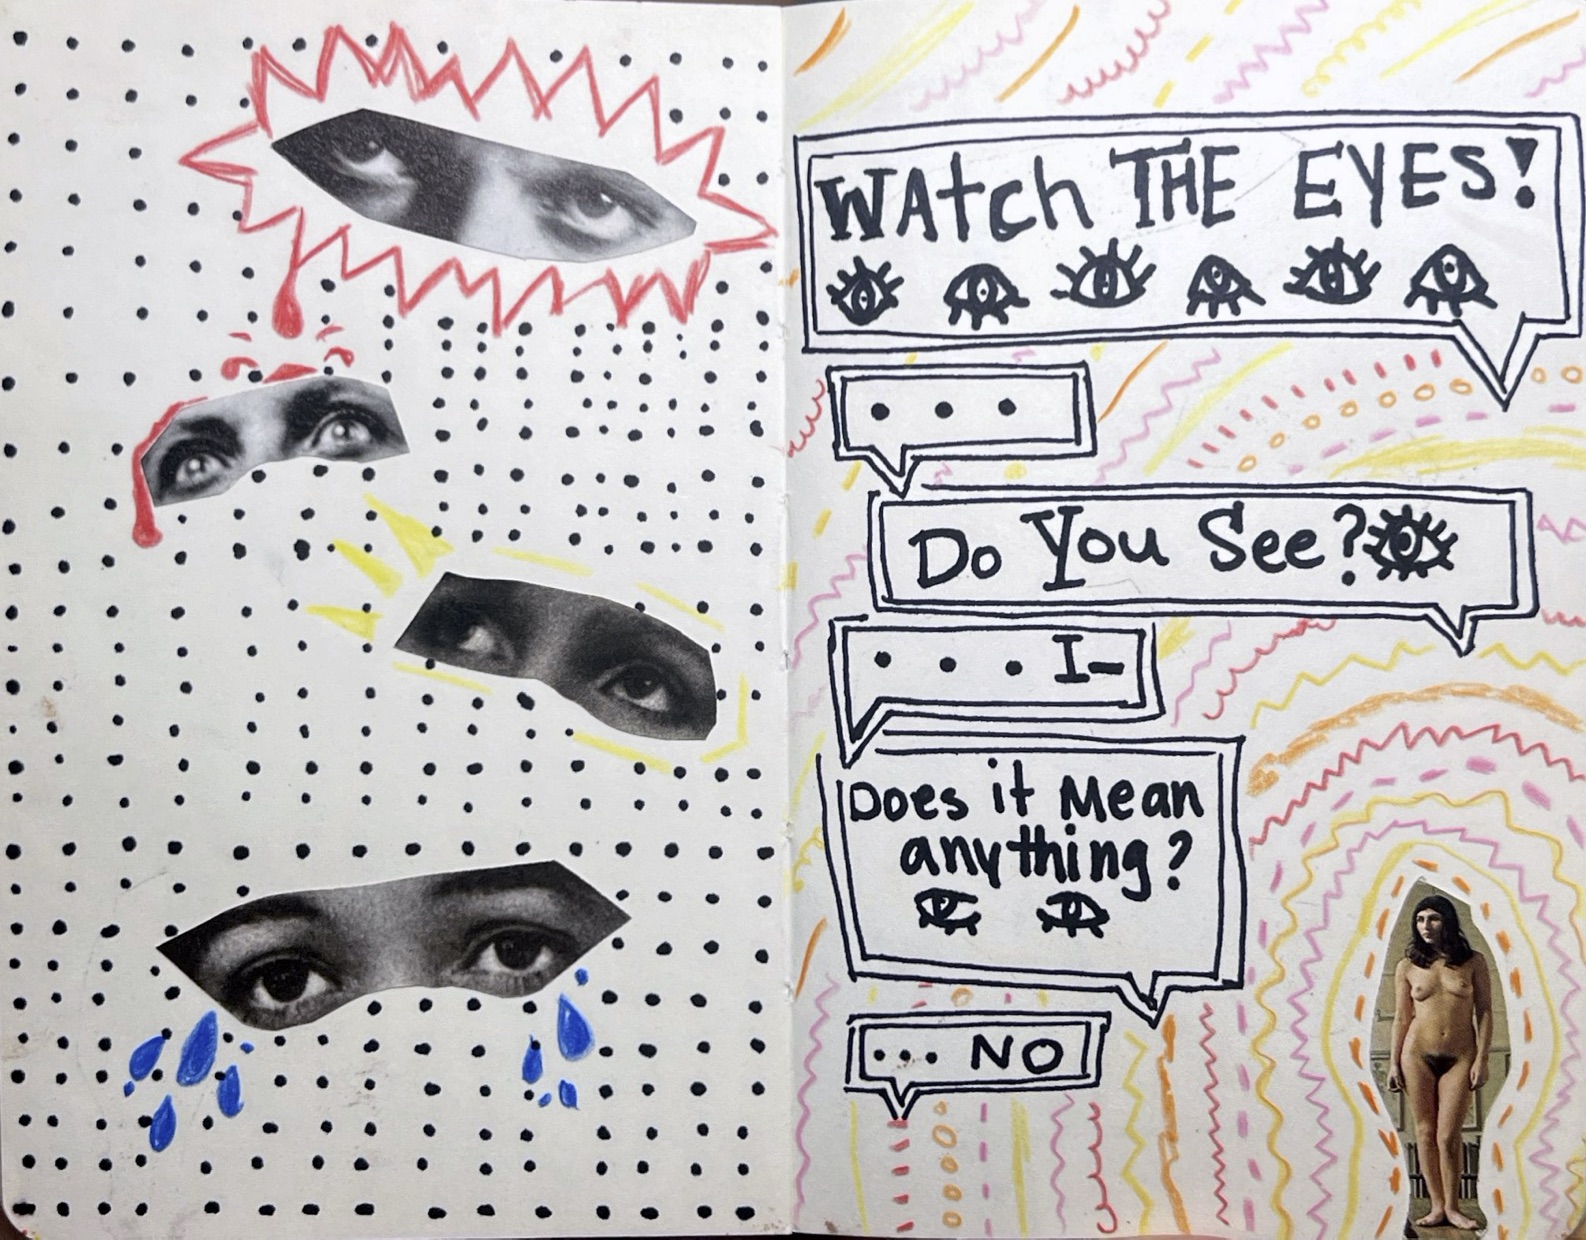 WAtch THE EYES!
. . .
Do You See?
. . . I-
Does it Mean
anything?
... NO